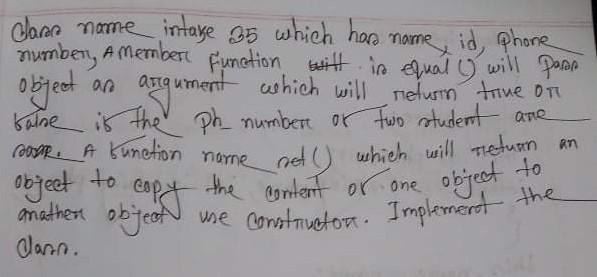 Class name intake 35 which has name, id, phone
number, A member function is equal () will pass
object as argument which will return true or
false is the Ph_number of two student are
same. A function name set() which will return an
object to copy the content of one object to
another object use constructor. Implement the
class.